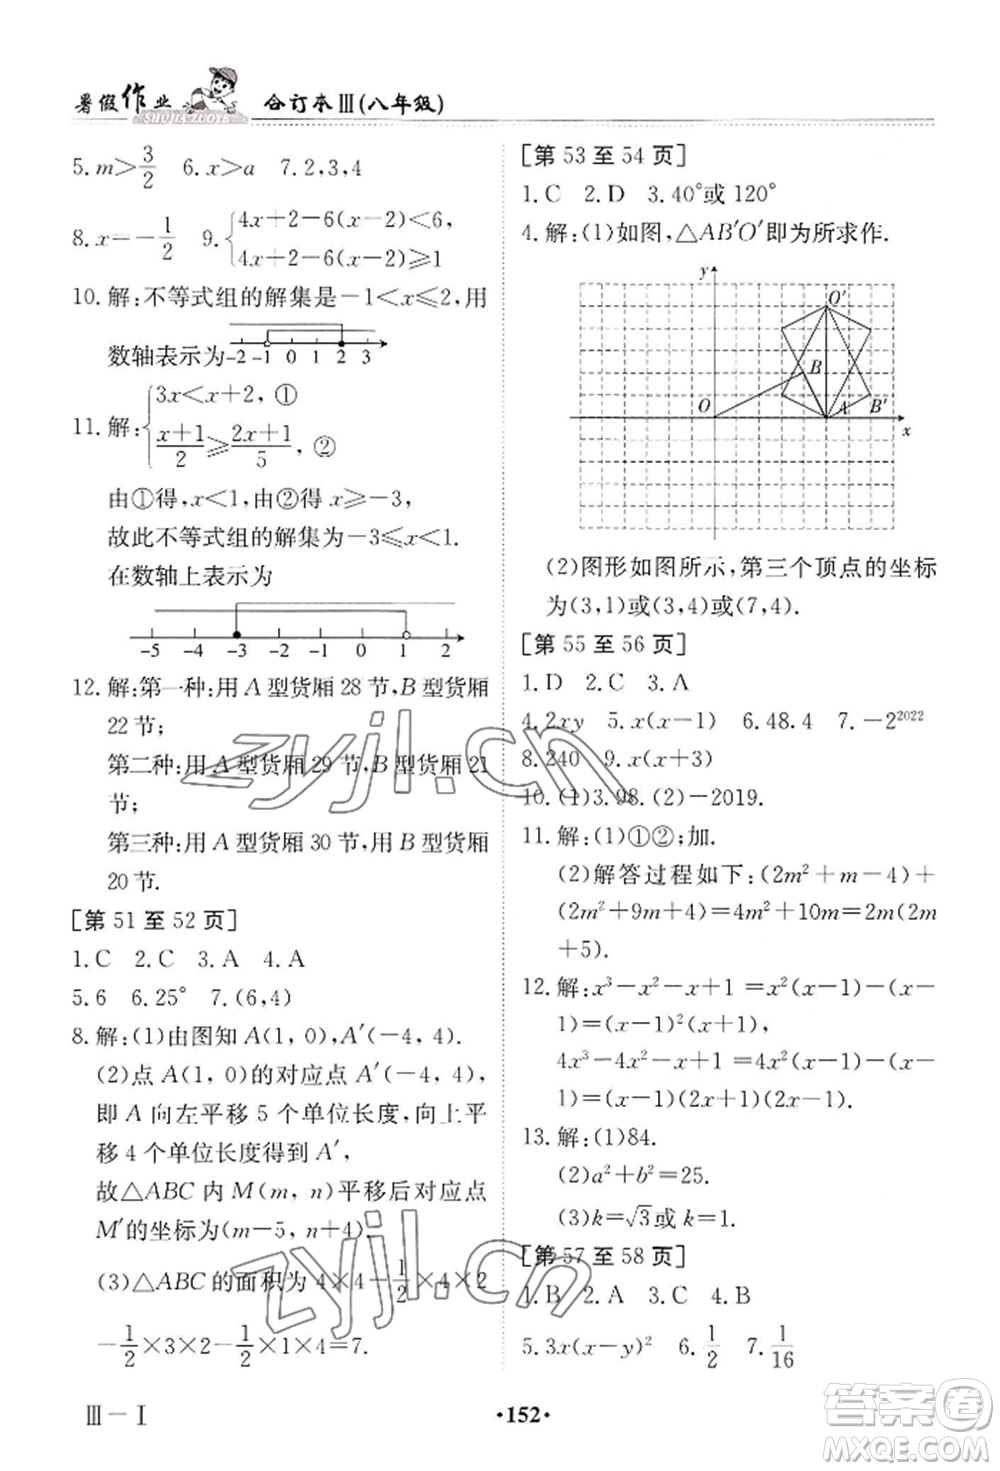 暑假作业 合订本Ⅲ(八年级)
SHUJIA ZUOYE
5. m>3/2 6. x>a 7. 2,3,4
8. x=-1/2 9. {4x+2-6(x-2)<6,
4x+2-6(x-2)≥1
10. 解:不等式组的解集是-1<x≤2,用
数轴表示为
-2 -1 0 1 2 3
11. 解:{3x<x+2,①
(x+1)/2≥(2x+1)/5,②
由①得,x<1,由②得x≥-3,
故此不等式组的解集为-3≤x<1.
在数轴上表示为
-5 -4 -3 -2 -1 0 1 2
12. 解:第一种:用A型货厢28节,B型货厢
22节;
第二种:用A型货厢29节,B型货厢21
节;
第三种:用A型货厢30节,用B型货厢
20节.
[第51至52页]
1. C 2. C 3. A 4. A
5. 6 6. 25° 7. (6,4)
8. 解:(1)由图知A(1,0),A′(-4,4).
(2)点A(1,0)的对应点A′(-4,4),
即A向左平移5个单位长度,向上平
移4个单位长度得到A′,
故△ABC内M(m,n)平移后对应点
M′的坐标为(m-5,n+4).
(3)△ABC的面积为4×4-1/2×4×2
-1/2×3×2-1/2×1×4=7.
[第53至54页]
1. C 2. D 3. 40°或120°
4. 解:(1)如图,△AB′O′即为所求作.
y O′ B O A B′ x
(2)图形如图所示,第三个顶点的坐标
为(3,1)或(3,4)或(7,4).
[第55至56页]
1. D 2. C 3. A
4. 2xy 5. x(x-1) 6. 48.4 7. -2²⁰²²
8. 240 9. x(x+3)
10. (1)3.98. (2)-2019.
11. 解:(1)①②;加.
(2)解答过程如下:(2m²+m-4)+
(2m²+9m+4)=4m²+10m=2m(2m
+5).
12. 解:x³-x²-x+1=x²(x-1)-(x-
1)=(x-1)²(x+1),
4x³-4x²-x+1=4x²(x-1)-(x-
1)=(x-1)(2x+1)(2x-1).
13. 解:(1)84.
(2)a²+b²=25.
(3)k=√3或k=1.
[第57至58页]
1. B 2. A 3. A 4. B
5. 3x(x-y)² 6. 1/2 7. 1/16
Ⅲ-Ⅰ
·152·
zyjl.cn
zyjl.cn
答案圈
MXQE.COM